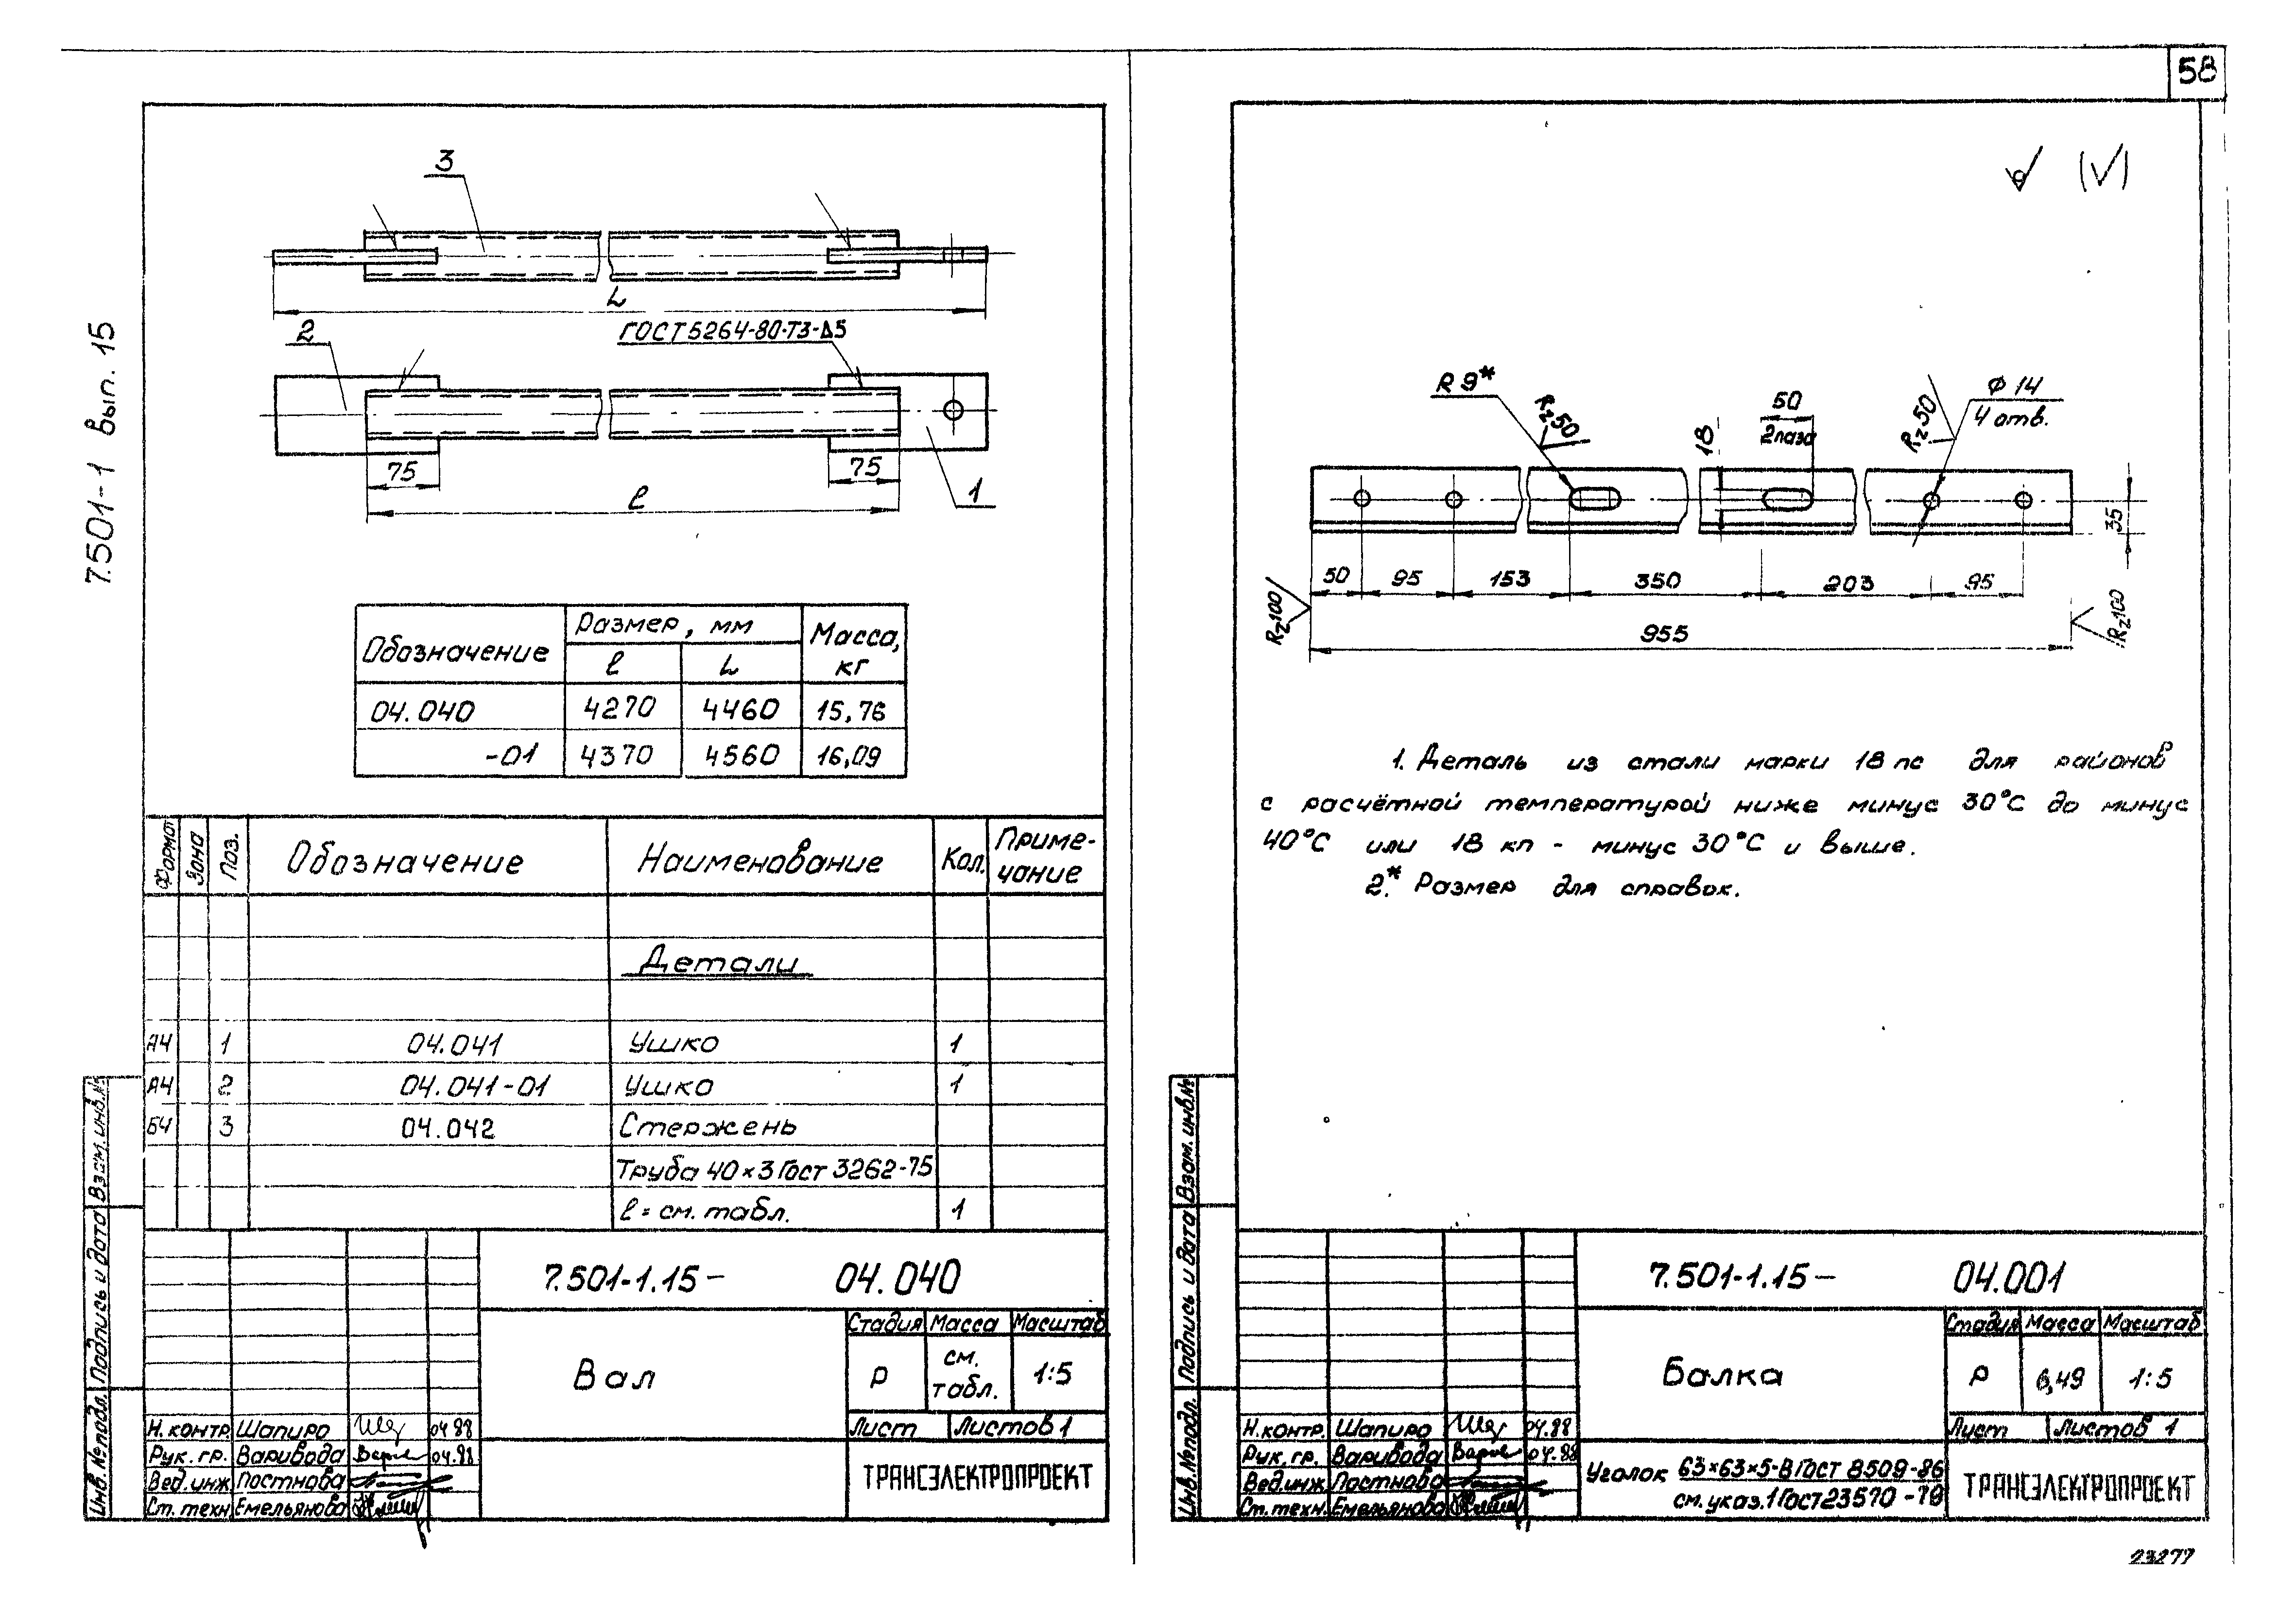 58
7.501-1 вып. 15
3
L
2
ГОСТ 5264-80-Т3-Δ5
75
75
1
l
Обозначение
Размер, мм
Масса, кг
l
L
04.040 4270 4460 15,76
-01 4370 4560 16,09
Формат Зона Поз. Обозначение Наименование Кол. Приме-
чание
Детали
А4 1 04.041 Ушко 1
А4 2 04.041-01 Ушко 1
БЧ 3 04.042 Стержень
Труба 40×3 Гост 3262-75
l = см. табл. 1
7.501-1.15- 04.040
Вал
Стадия Масса Масштаб
Р см. табл. 1:5
Лист Листов 1
ТРАНСЭЛЕКТРОПРОЕКТ
Н.контр. Шапиро 04.88
Рук. гр. Варивода 04.88
Вед.инж. Постнова
Ст.техн. Емельянова
Инв.№подл. Подпись и дата Взам.инв.№
R 9*
Rz50
50
2 паза
18
Rz50
Ф 14
4 отв.
35
50 95 153 350 203 95
Rz100
955
Rz100
1. Деталь из стали марки 18 пс для районов
с расчётной температурой ниже минус 30°С до минус
40°С или 18 кп - минус 30°С и выше.
2.* Размер для справок.
7.501-1.15- 04.001
Балка
Стадия Масса Масштаб
Р 6,49 1:5
Лист Листов 1
Уголок 63×63×5-В Гост 8509-86
см. указ.1 Гост 23570-79
ТРАНСЭЛЕКТРОПРОЕКТ
Н.контр. Шапиро 04.88
Рук. гр. Варивода 04.88
Вед.инж. Постнова
Ст.техн. Емельянова
Инв.№подл. Подпись и дата Взам.инв.№
23277